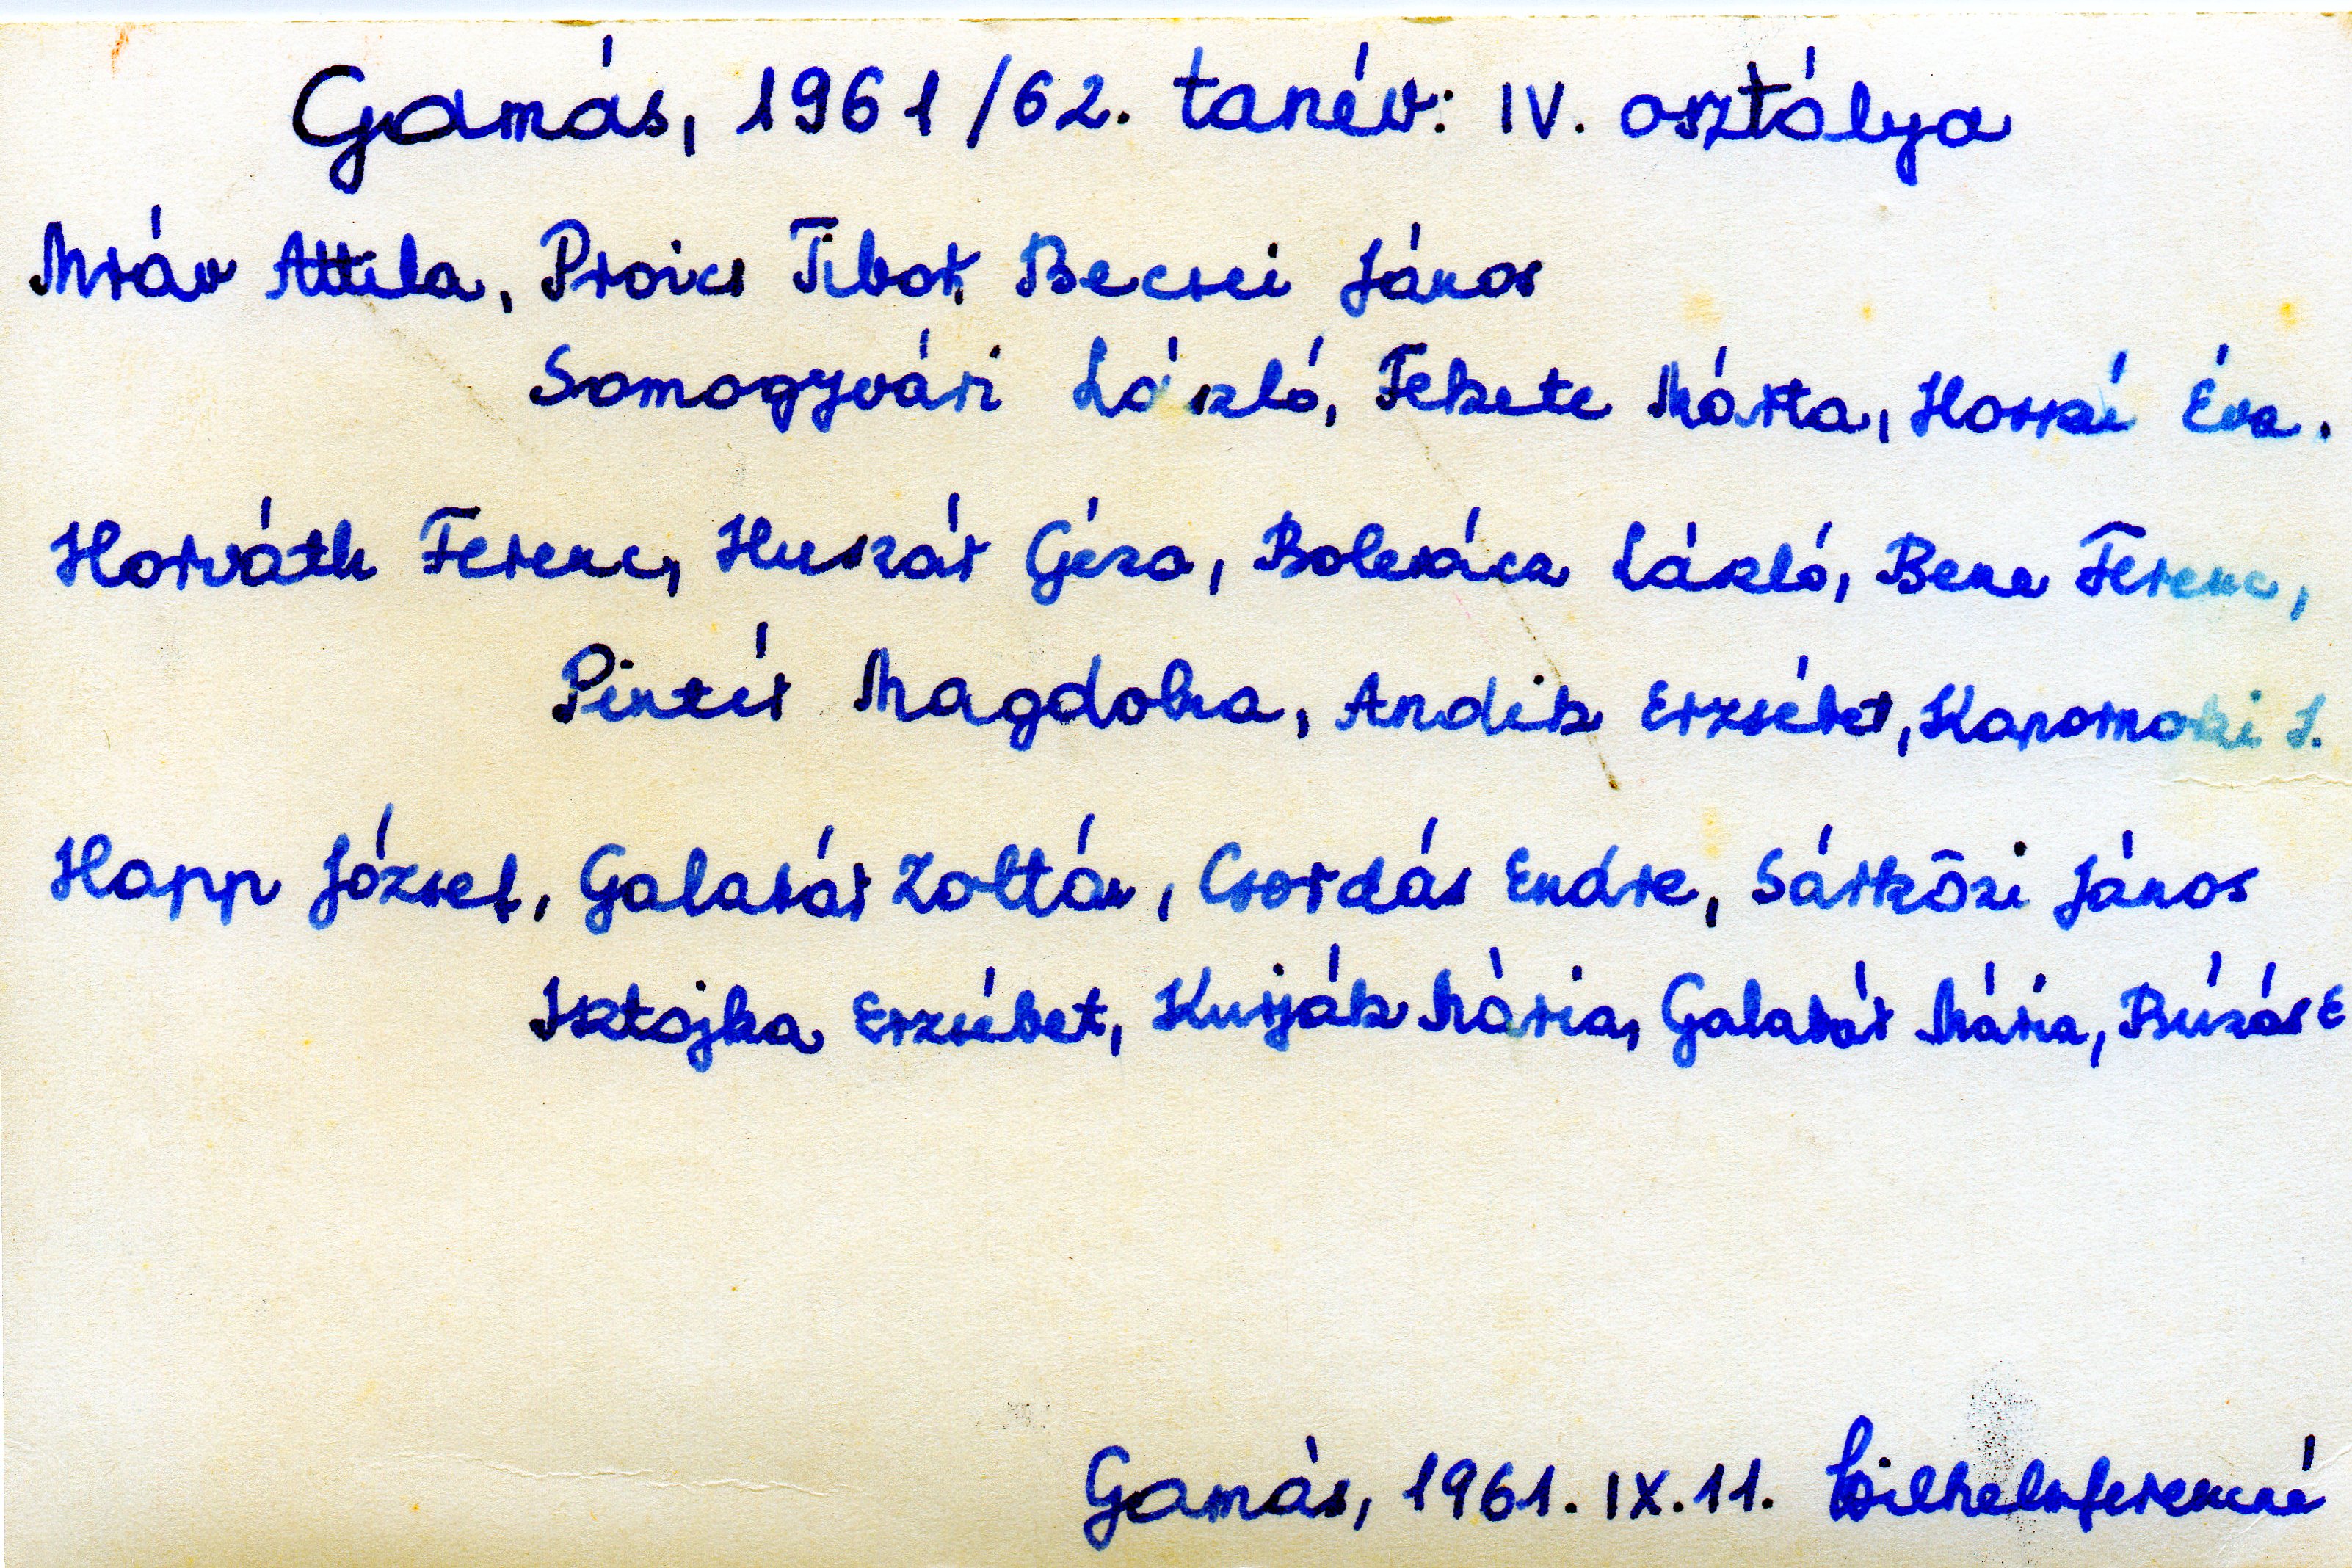 Gamás, 1961/62. tanév: IV. osztálya
Mráv Attila, Proics Tibor, Becsei János
Somogyvári László, Fekete Márta, Éva.
Horváth Ferenc, Huszár Géza, László, Bene Ferenc,
Pintér Magdolna, Andik Erzsébet,
Happ József, Galabár Zoltán, Csordás Endre, Sárközi János
Isztojka Erzsébet, Kurják Mária, Galabár Mária, Búzás E
Gamás, 1961. IX. 11. Wilhelmferencné